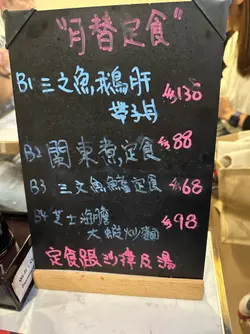 "月替定食"
B1 三文魚鵝肝
帶子丼 $138
B2 関東煮定食 $88
B3 三文魚定食 $68
B4 芝士海膽
大蝦炒麵 $98
定食跟沙律及湯